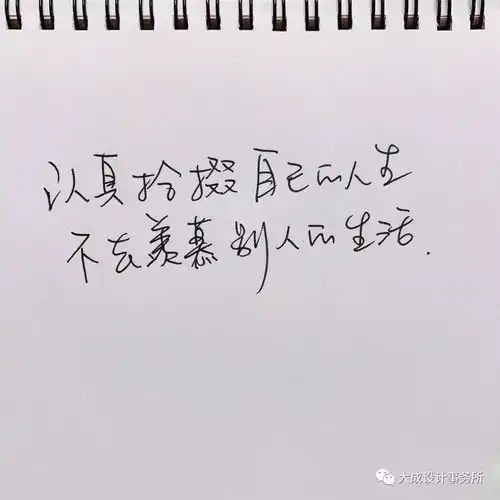 认真拾掇自己的人生
不去羡慕别人的生活.
大成设计事务所